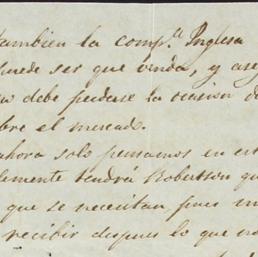 tambien la comp.ª Inglesa
puede ser que venda, y ase
debe perderse la ocasion d
bre el mercado.
ahora solo pensamos en est
lemente tendrá Robertson qu
que se necesitan, pues
recibir despues lo que no